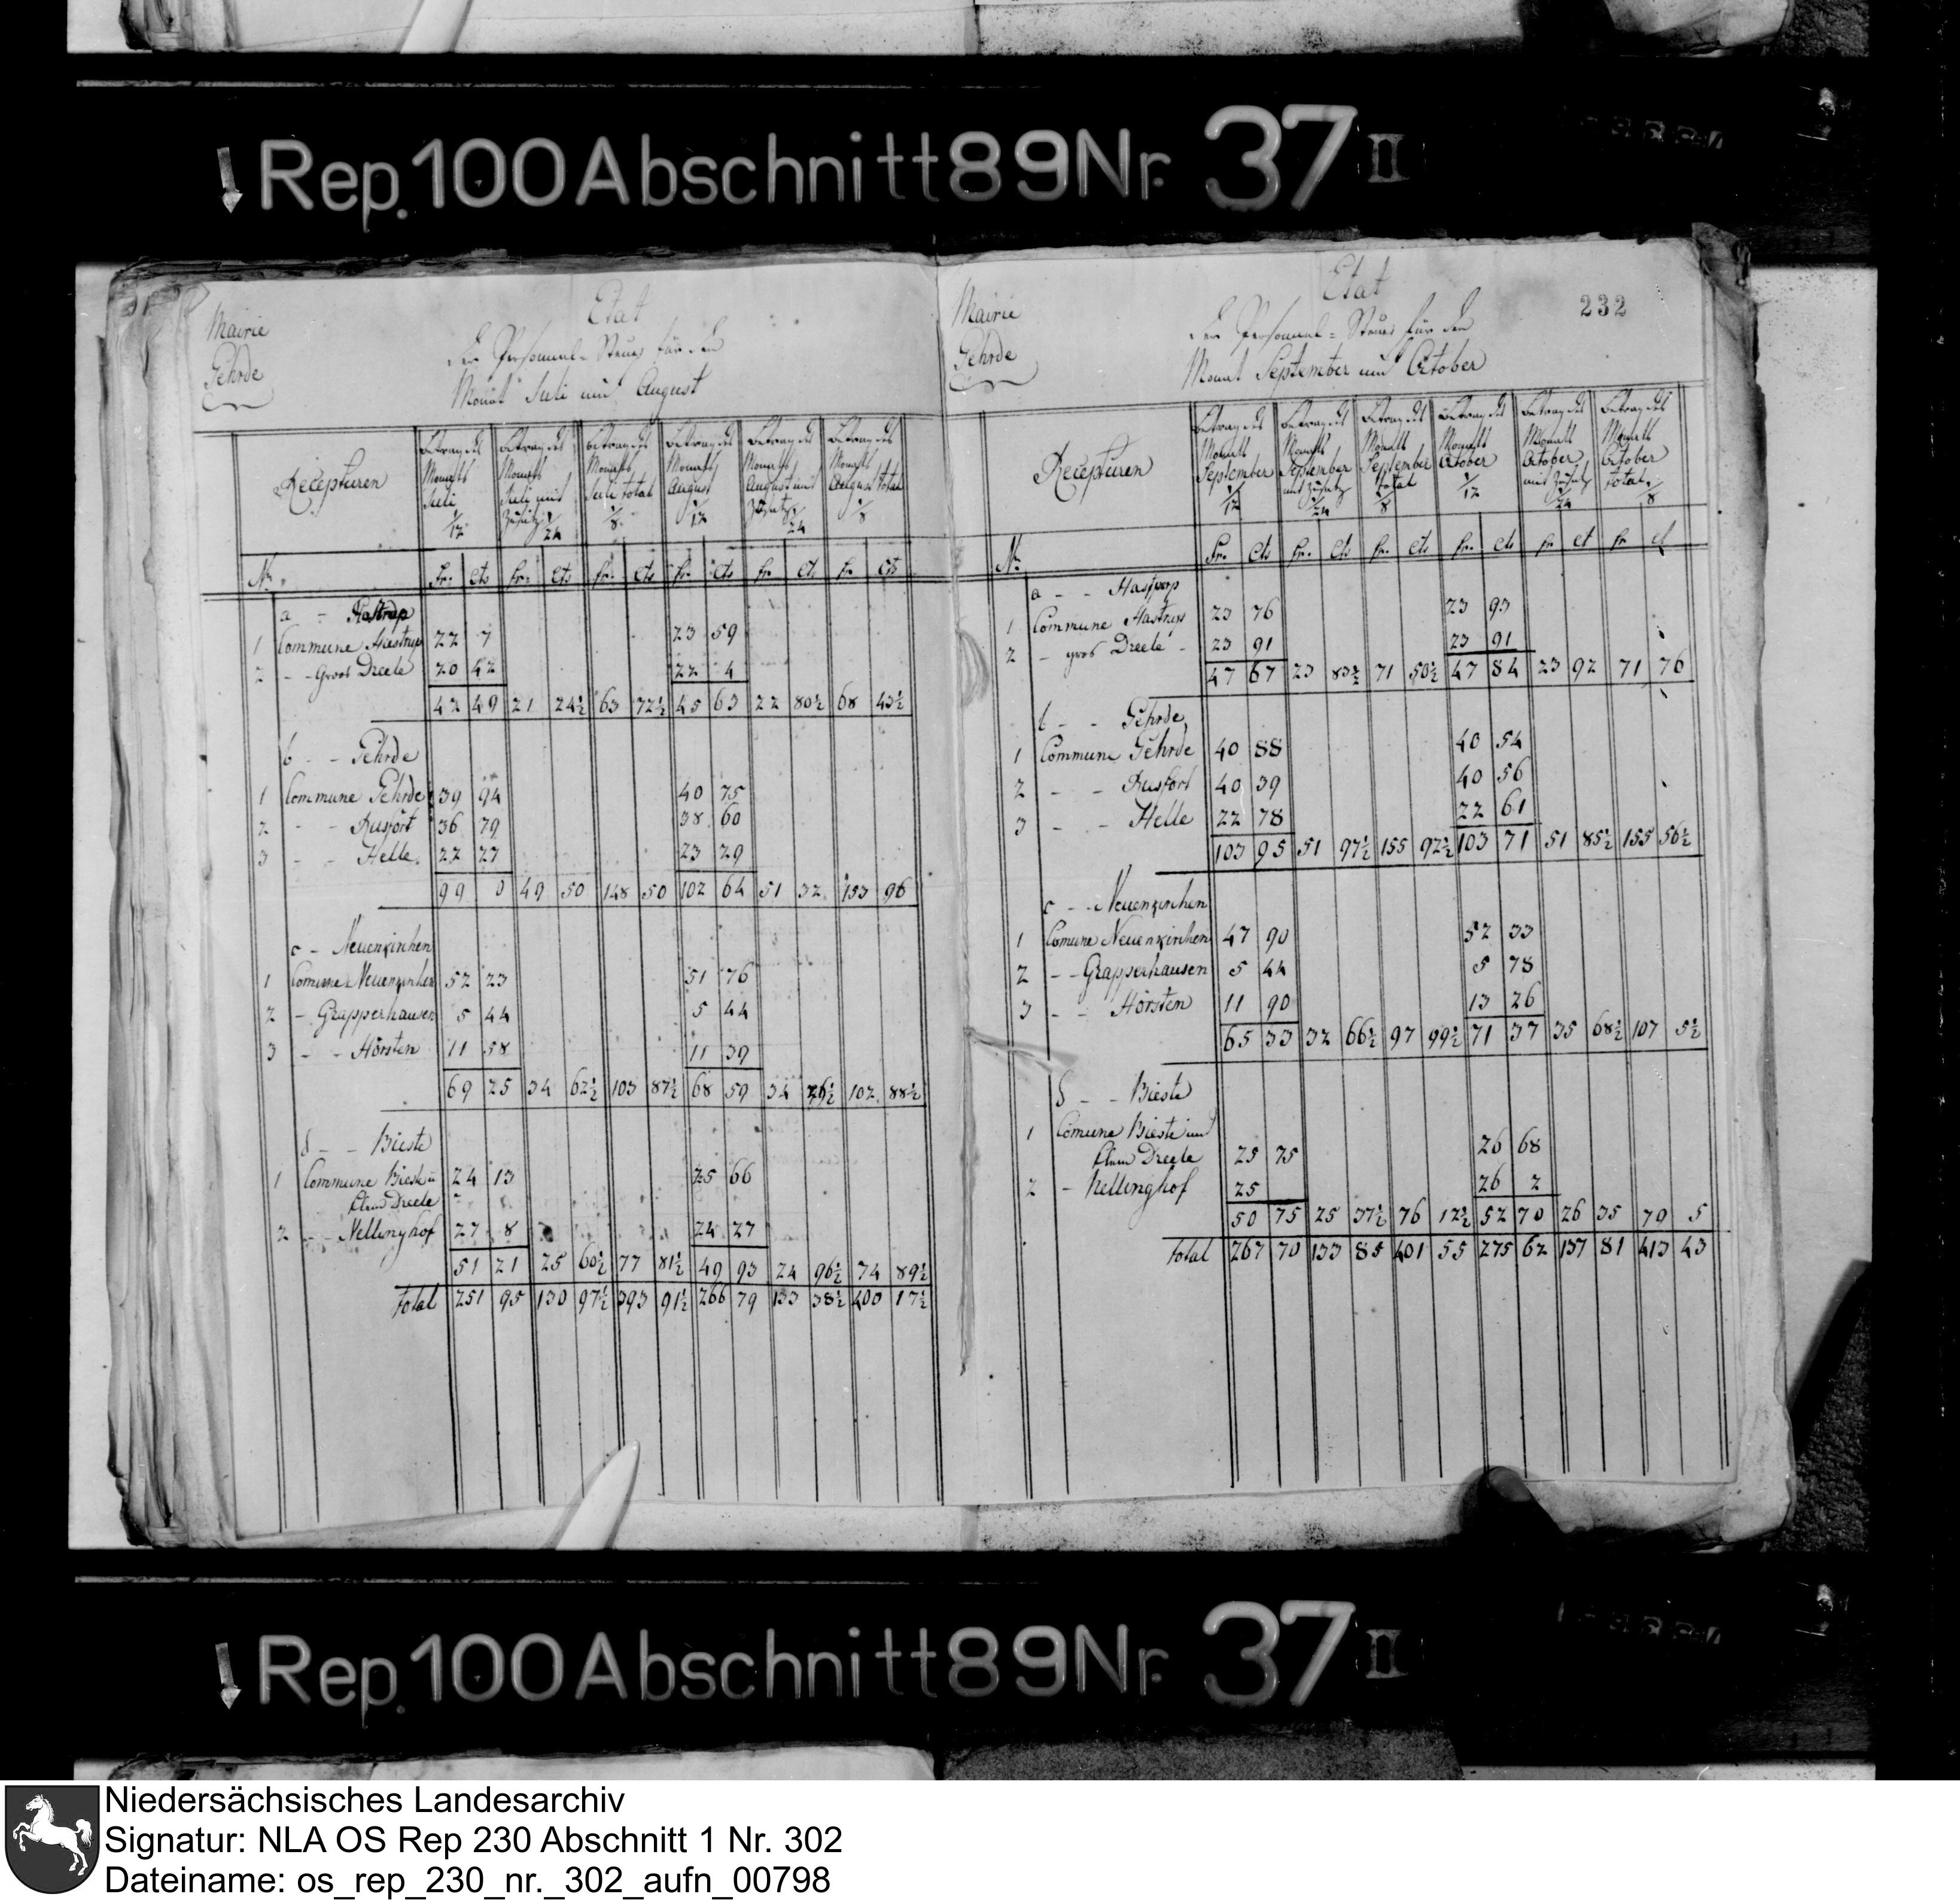 Rep. 100 Abschnitt 89 Nr. 37 II
Mairie
Gehrde
Etat
der Personal-Steuer für den
Monat Juli und August
Recepturen
Betrag des Monaths Juli 1/12
Betrag des Monaths Juli mit Zusatz 1/24
Betrag des Monaths Juli total 1/8
Betrag des Monaths August 1/12
Betrag des Monaths August mit Zusatz 1/24
Betrag des Monaths August total 1/8
Nr. fr. cts fr. cts fr. cts fr. cts fr. cts fr. cts
a - Hastrup
1 Commune Hastrup 22 7 23 59
2 - - Groot Dreele 20 42 22 4
42 49 21 24½ 63 72½ 45 63 22 80½ 68 43½
b - - Gehrde
1 Commune Gehrde 39 94 40 75
2 - - Rusfort 36 79 38 60
3 - - Helle 22 27 23 29
99 0 49 50 148 50 102 64 51 32 153 96
c - Neuenkirchen
1 Commune Neuenkirchen 52 23 51 76
2 - Grapperhausen 5 44 5 44
3 - - Hörsten 11 58 11 39
69 25 34 62½ 103 87½ 68 59 34 29½ 102 88½
d - - Bieste
1 Commune Bieste u 24 13 25 66
klein Dreele
2 - - Nellinghof 27 8 24 27
51 21 25 60½ 77 81½ 49 93 24 96½ 74 89½
total 251 95 130 97½ 393 91½ 266 79 133 38½ 400 17½
232
Mairie
Gehrde
Etat
der Personal-Steuer für den
Monat September und October
Recepturen
Betrag des Monaths September 1/12
Betrag des Monaths September mit Zusatz 1/24
Betrag des Monaths September total 1/8
Betrag des Monaths October 1/12
Betrag des Monaths October mit Zusatz 1/24
Betrag des Monaths October total 1/8
Nr. fr. cts fr. cts fr. cts fr. cts fr ct fr ct
a - - Hastrup
1 Commune Hastrup 23 76 23 93
2 - groß Dreele - 23 91 23 91
47 67 23 83½ 71 50½ 47 84 23 92 71 76
b - - Gehrde
1 Commune Gehrde 40 88 40 54
2 - - Rusfort 40 39 40 56
3 - - Helle 22 78 22 61
103 95 51 97½ 155 92½ 103 71 51 85½ 155 56½
c - - Neuenkirchen
1 Comune Neuenkirchen 47 90 52 33
2 - - Grapperhausen 5 44 5 78
3 - - Hörsten 11 90 13 26
65 33 32 66½ 97 99½ 71 37 35 68½ 107 5½
d - - Bieste
1 Comune Bieste und
klein Dreele 25 75 26 68
2 - Nellinghof 25 26 2
50 75 25 37½ 76 12½ 52 70 26 35 79 5
total 267 70 133 85 401 55 275 62 137 81 413 43
Rep. 100 Abschnitt 89 Nr. 37 II
Niedersächsisches Landesarchiv
Signatur: NLA OS Rep 230 Abschnitt 1 Nr. 302
Dateiname: os_rep_230_nr._302_aufn_00798